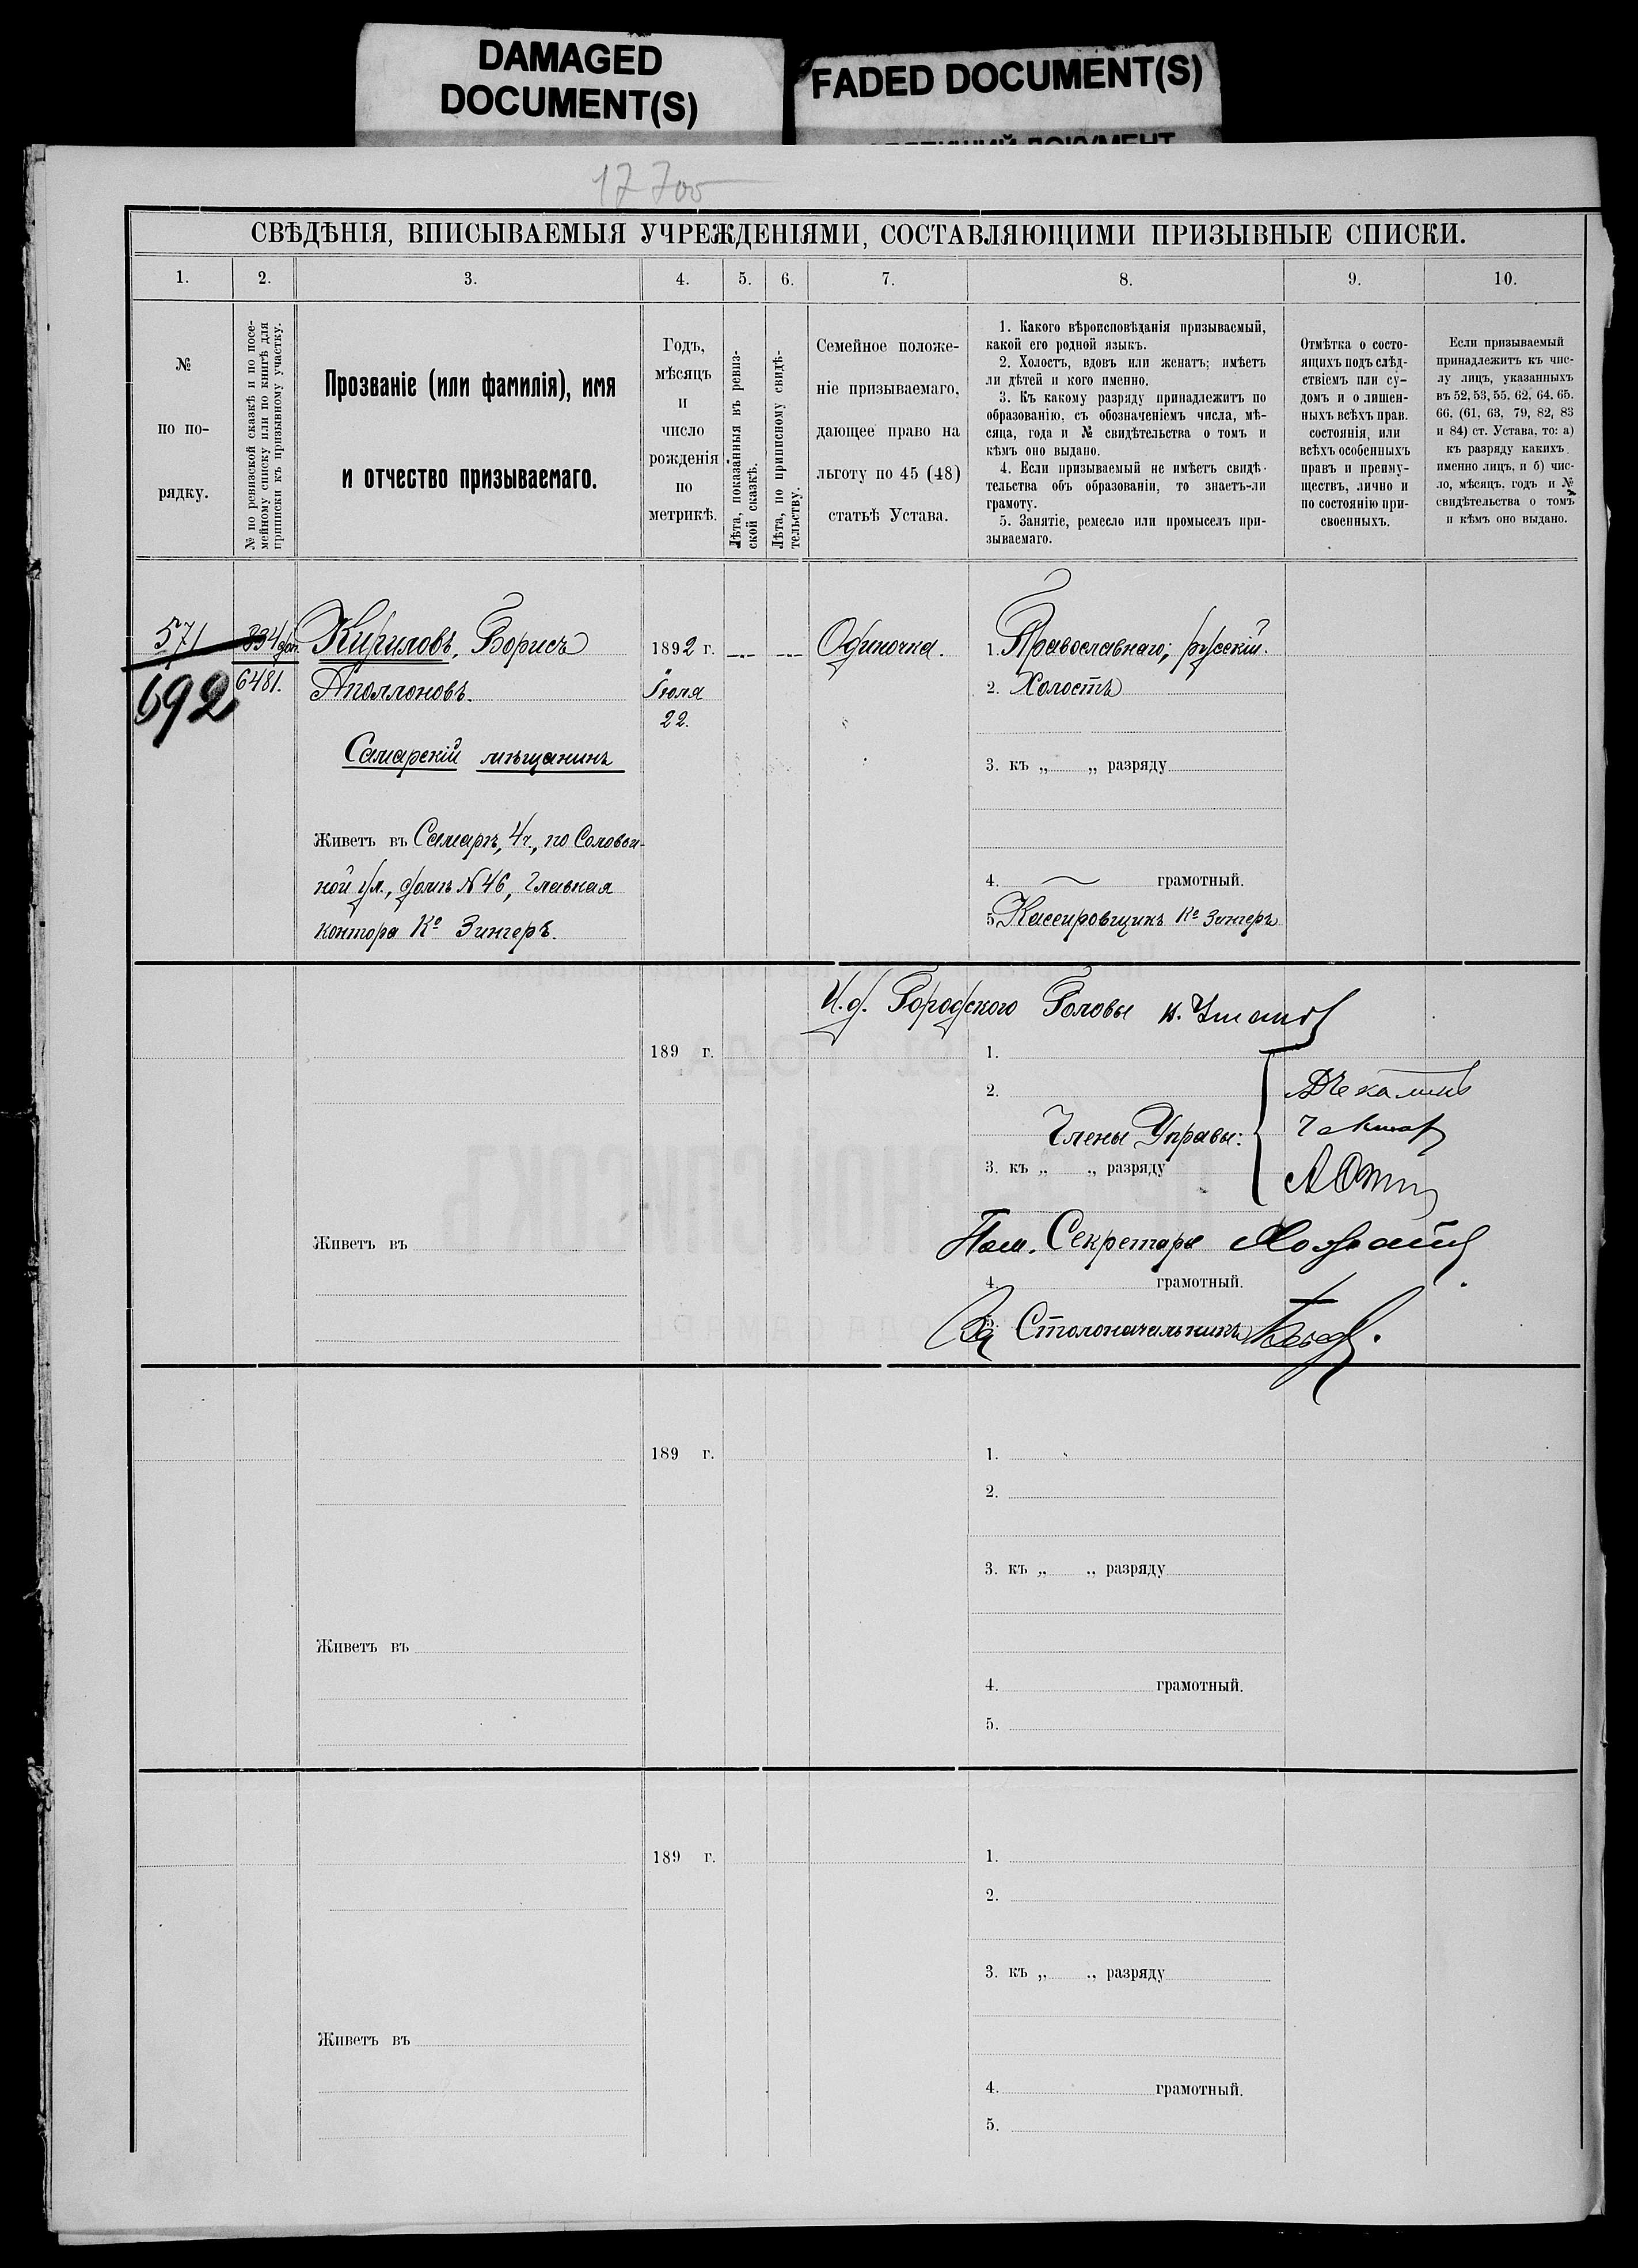 DAMAGED
DOCUMENT(S)
FADED DOCUMENT(S)
17700
СВѢДѢНІЯ, ВПИСЫВАЕМЫЯ УЧРЕЖДЕНІЯМИ, СОСТАВЛЯЮЩИМИ ПРИЗЫВНЫЕ СПИСКИ.
1. 2. 3. 4. 5. 6. 7. 8. 9. 10.
№
по по-
рядку.
№ по ревизской сказкѣ и по посе-
мейному списку или по книгѣ для
приписки къ призывному участку.
Прозваніе (или фамилія), имя
и отчество призываемаго.
Годъ,
мѣсяцъ
и
число
рожденія
по
метрикѣ.
Лѣта, показанныя въ ревиз-
ской сказкѣ.
Лѣта, по приписному свидѣ-
тельству.
Семейное положе-
ніе призываемаго,
дающее право на
льготу по 45 (48)
статьѣ Устава.
1. Какого вѣроисповѣданія призываемый,
какой его родной языкъ.
2. Холостъ, вдовъ или женатъ; имѣетъ
ли дѣтей и кого именно.
3. Къ какому разряду принадлежитъ по
образованію, съ обозначеніемъ числа, мѣ-
сяца, года и № свидѣтельства о томъ и
кѣмъ оно выдано.
4. Если призываемый не имѣетъ свидѣ-
тельства объ образованіи, то знаетъ-ли
грамоту.
5. Занятіе, ремесло или промыселъ при-
зываемаго.
Отмѣтка о состо-
ящихъ подъ слѣд-
ствіемъ или су-
домъ и о лишен-
ныхъ всѣхъ прав.
состоянія, или
всѣхъ особенныхъ
правъ и преиму-
ществъ, лично и
по состоянію при-
своенныхъ.
Если призываемый
принадлежитъ къ чис-
лу лицъ, указанныхъ
въ 52, 53, 55, 62, 64, 65,
66, (61, 63, 79, 82, 83
и 84) ст. Устава, то: а)
къ разряду какихъ
именно лицъ, и б) чис-
ло, мѣсяцъ, годъ и №
свидѣтельства о томъ
и кѣмъ оно выдано.
571
692
834
6481.
Кириловъ, Борисъ
Аполлоновъ.
Самарскій мѣщанинъ
Живетъ въ Самарѣ, 4ч., по Соловьи-
ной ул., домъ № 46, Главная
контора Ко Зингеръ.
1892 г.
Іюля
22.
Одиночка.
1. Православнаго; русскій.
2. Холостъ
3. къ „ „ разряду
4. грамотный.
5. Кассировщикъ Ко Зингеръ
И.д. Городского Головы
189 г.
1.
2.
Члены Управы:
3. къ „ „ разряду
Живетъ въ
Пом. Секретаря
4. грамотный.
За Столоначальника
189 г.
1.
2.
3. къ „ „ разряду
Живетъ въ
4. грамотный.
5.
189 г.
1.
2.
3. къ „ „ разряду
Живетъ въ
4. грамотный.
5.